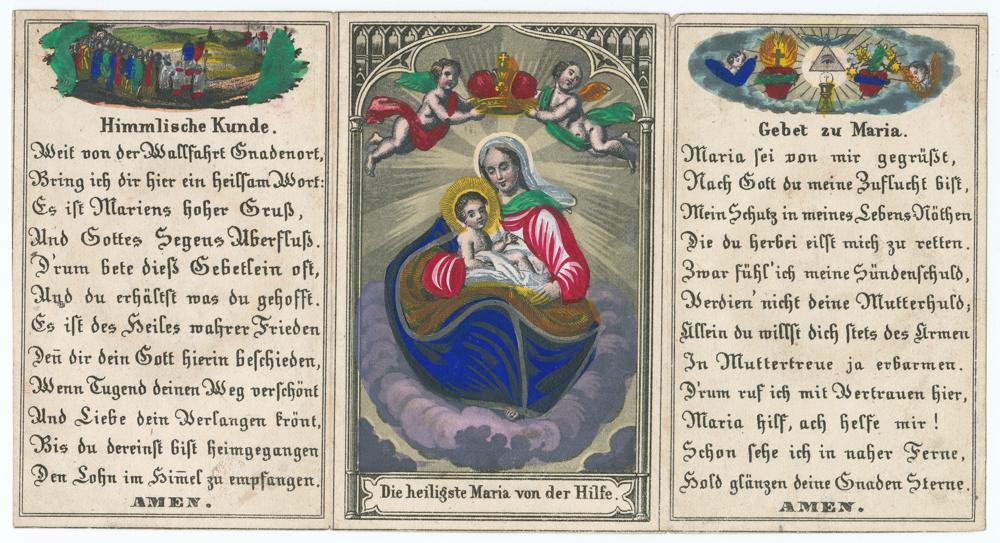 Himmlische Kunde.
Weit von der Wallfahrt Gnadenort,
Bring ich dir hier ein heilsam Wort:
Es ist Mariens hoher Gruß,
Und Gottes Segens Uberfluß.
D'rum bete dieß Gebetlein oft,
Und du erhältst was du gehofft.
Es ist des Heiles wahrer Frieden
Den̄ dir dein Gott hierin beschieden,
Wenn Tugend deinen Weg verschönt
Und Liebe dein Verlangen krönt,
Bis du dereinst bist heimgegangen
Den Lohn im Him̄el zu empfangen.
AMEN.
Die heiligste Maria von der Hilfe.
Gebet zu Maria.
Maria sei von mir gegrüßt,
Nach Gott du meine Zuflucht bist,
Mein Schutz in meines Lebens Nöthen
Die du herbei eilst mich zu retten.
Zwar fühl' ich meine Sündenschuld,
Verdien' nicht deine Mutterhuld;
Allein du willst dich stets des Armen
In Muttertreue ja erbarmen.
D'rum ruf ich mit Vertrauen hier,
Maria hilf, ach helfe mir!
Schon sehe ich in naher Ferne,
Hold glänzen deine Gnaden Sterne.
AMEN.